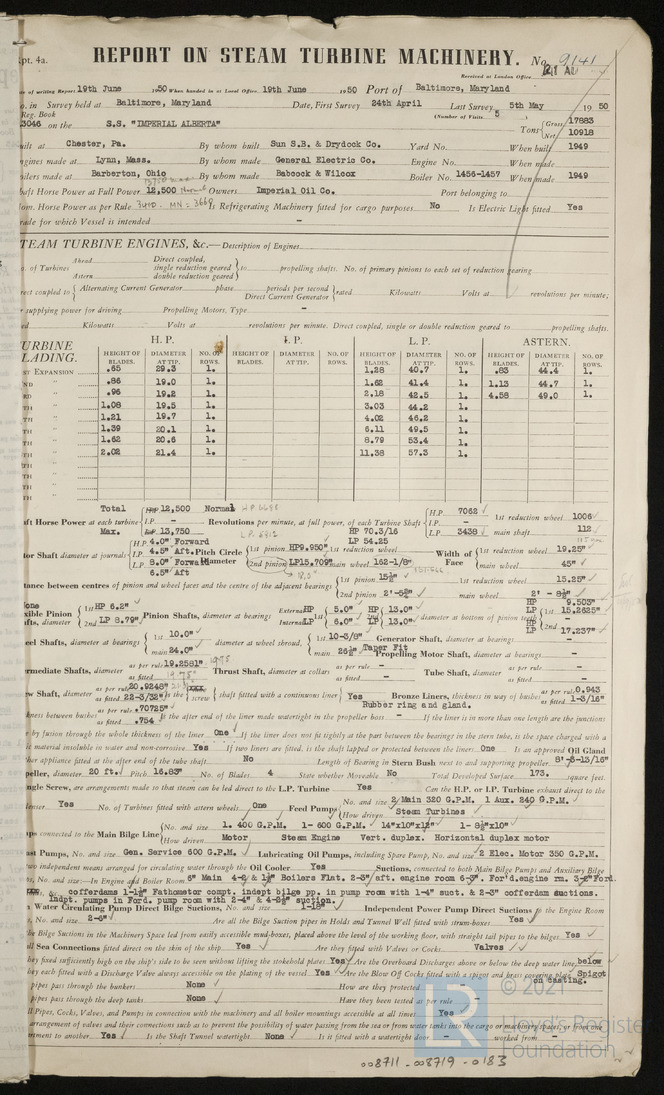 pt. 4a. REPORT ON STEAM TURBINE MACHINERY. No. 9141
Received at London Office
of writing Report 19th June 1950 When handed in at Local Office 19th June 1950 Port of Baltimore, Maryland
in Survey held at Baltimore, Maryland Date, First Survey 24th April Last Survey 5th May 1950
Reg. Book (Number of Visits 5 )
3046 on the S.S. "IMPERIAL ALBERTA" Tons { Gross 17883
Net 10918
uilt at Chester, Pa. By whom built Sun S.B. & Drydock Co. Yard No. When built 1949
ngines made at Lynn, Mass. By whom made General Electric Co. Engine No. When made
oilers made at Barberton, Ohio By whom made Babcock & Wilcox Boiler No. 1456-1457 When made 1949
haft Horse Power at Full Power 12,500 Owners Imperial Oil Co. Port belonging to
om. Horse Power as per Rule 3440. MN = 3669 Is Refrigerating Machinery fitted for cargo purposes No Is Electric Light fitted Yes
rade for which Vessel is intended -
STEAM TURBINE ENGINES, &c.—Description of Engines
of Turbines Ahead Astern Direct coupled, single reduction geared double reduction geared } to propelling shafts. No. of primary pinions to each set of reduction gearing
rect coupled to { Alternating Current Generator phase periods per second Direct Current Generator } rated Kilowatts Volts at revolutions per minute;
supplying power for driving Propelling Motors, Type -
ed Kilowatts Volts at revolutions per minute. Direct coupled, single or double reduction geared to propelling shafts.
TURBINE BLADING. H. P. I. P. L. P. ASTERN.
HEIGHT OF BLADES. DIAMETER AT TIP. NO. OF ROWS. HEIGHT OF BLADES. DIAMETER AT TIP. NO. OF ROWS. HEIGHT OF BLADES. DIAMETER AT TIP. NO. OF ROWS. HEIGHT OF BLADES. DIAMETER AT TIP. NO. OF ROWS.
ST EXPANSION .65 29.3 1. 1.28 40.7 1. .83 44.4 1.
ND " .86 19.0 1. 1.62 41.4 1. 1.13 44.7 1.
RD " .96 19.2 1. 2.18 42.5 1. 4.58 49.0 1.
TH " 1.08 19.5 1. 3.03 44.2 1.
TH " 1.21 19.7 1. 4.02 46.2 1.
TH " 1.39 20.1 1. 6.11 49.5 1.
TH " 1.62 20.6 1. 8.79 53.4 1.
TH " 2.02 21.4 1. 11.38 57.3 1.
Total 12,500 Normal H.P. 7062 1st reduction wheel 1006
aft Horse Power at each turbine I.P. - Revolutions per minute, at full power, of each Turbine Shaft I.P. -
Max. 13,750 HP 70.3/16 L.P. 3438 main shaft 112
H.P. 4.0" Forward LP 54.25
tor Shaft diameter at journals 4.5" Aft. Pitch Circle Diameter { 1st pinion HP9.950" 1st reduction wheel Width of Face { 1st reduction wheel 19.25"
L.P. 8.0" Forward 2nd pinion LP15.709" main wheel 162-1/8" main wheel 45"
6.5" Aft
tance between centres of pinion and wheel faces and the centre of the adjacent bearings { 1st pinion 15½" 1st reduction wheel 15.25"
2nd pinion 2'-5½" main wheel 2' - 8½"
None HP 9.503"
exible Pinion Shafts, diameter { 1st HP 6.2" 2nd LP 8.79" Pinion Shafts, diameter at bearings External HP 5.0" HP 13.0" Internal LP 6.0" LP 13.0" diameter at bottom of pinion teeth { 1st LP 15.2625" 2nd 17.237"
eel Shafts, diameter at bearings { 1st 10.0" main 24.0" diameter at wheel shroud, { 1st 10-3/8" main 26½" Taper Fit Generator Shaft, diameter at bearings -
Propelling Motor Shaft, diameter at bearings -
ermediate Shafts, diameter as per rule 19.2581" as fitted 19.75" Thrust Shaft, diameter at collars as per rule - as fitted - Tube Shaft, diameter as per rule - as fitted -
ew Shaft, diameter as per rule 20.9248" as fitted 22-3/32" Is the shaft fitted with a continuous liner Yes Bronze Liners, thickness in way of bushes as per rule 0.943 as fitted 1-3/16"
Rubber ring and gland.
kness between bushes as per rule .70725" as fitted .754 Is the after end of the liner made watertight in the propeller boss - If the liner is in more than one length are the junctions
by fusion through the whole thickness of the liner One If the liner does not fit tightly at the part between the bearings in the stern tube, is the space charged with a
ic material insoluble in water and non-corrosive Yes If two liners are fitted, is the shaft lapped or protected between the liners One Is an approved Oil Gland
ther appliance fitted at the after end of the tube shaft No Length of Bearing in Stern Bush next to and supporting propeller 8'-8-13/16"
peller, diameter 20 ft. Pitch 16.83" No. of Blades 4 State whether Moveable No Total Developed Surface 173. square feet.
ngle Screw, are arrangements made so that steam can be led direct to the L.P. Turbine Yes Can the H.P. or I.P. Turbine exhaust direct to the
denser Yes No. of Turbines fitted with astern wheels One Feed Pumps { No. and size 2/Main 320 G.P.M. 1 Aux. 240 G.P.M.
How driven Steam Turbines
ps connected to the Main Bilge Line { No. and size 1. 400 G.P.M. 1- 600 G.P.M. 14"x10"x12" 1- 8½"x10"
How driven Motor Steam Engine Vert. duplex. Horizontal duplex motor
ast Pumps, No. and size Gen. Service 600 G.P.M. Lubricating Oil Pumps, including Spare Pump, No. and size 2 Elec. Motor 350 G.P.M.
two independent means arranged for circulating water through the Oil Cooler Yes Suctions, connected to both Main Bilge Pumps and Auxiliary Bilge
ps, No. and size:—In Engine and Boiler Room 8" Main 4-2 & 1½" Boilers Flat. 2-3" Aft. engine room 6-3". For'd.engine rm. 3-3" Ford.
cofferdams 1-1½" Fathometer compt. indept bilge pp. in pump room with 1-4" suct. & 2-3" cofferdam suctions.
Indpt. pumps in Ford. pump room with 2-4" & 4-3½" suction.
Water Circulating Pump Direct Bilge Suctions, No. and size 1-18" Independent Power Pump Direct Suctions to the Engine Room
s, No. and size 2-6" Are all the Bilge Suction pipes in Holds and Tunnel Well fitted with strum-boxes Yes
he Bilge Suctions in the Machinery Space led from easily accessible mud-boxes, placed above the level of the working floor, with straight tail pipes to the bilges Yes
ll Sea Connections fitted direct on the skin of the ship Yes Are they fitted with Valves or Cocks Valves
hey fixed sufficiently high on the ship's side to be seen without lifting the stokehold plates Yes Are the Overboard Discharges above or below the deep water line below
hey each fitted with a Discharge Valve always accessible on the plating of the vessel Yes Are the Blow Off Cocks fitted with a spigot and brass covering plate Spigot
on casting.
pipes pass through the bunkers None How are they protected -
pipes pass through the deep tanks None Have they been tested as per rule -
ll Pipes, Cocks, Valves, and Pumps in connection with the machinery and all boiler mountings accessible at all times Yes
arrangement of valves and their connections such as to prevent the possibility of water passing from the sea or from water tanks into the cargo or machinery spaces, or from one
rtment to another Yes Is the Shaft Tunnel watertight None Is it fitted with a watertight door - worked from -
© 2021
Lloyd's Register
Foundation
008711-008719-0183